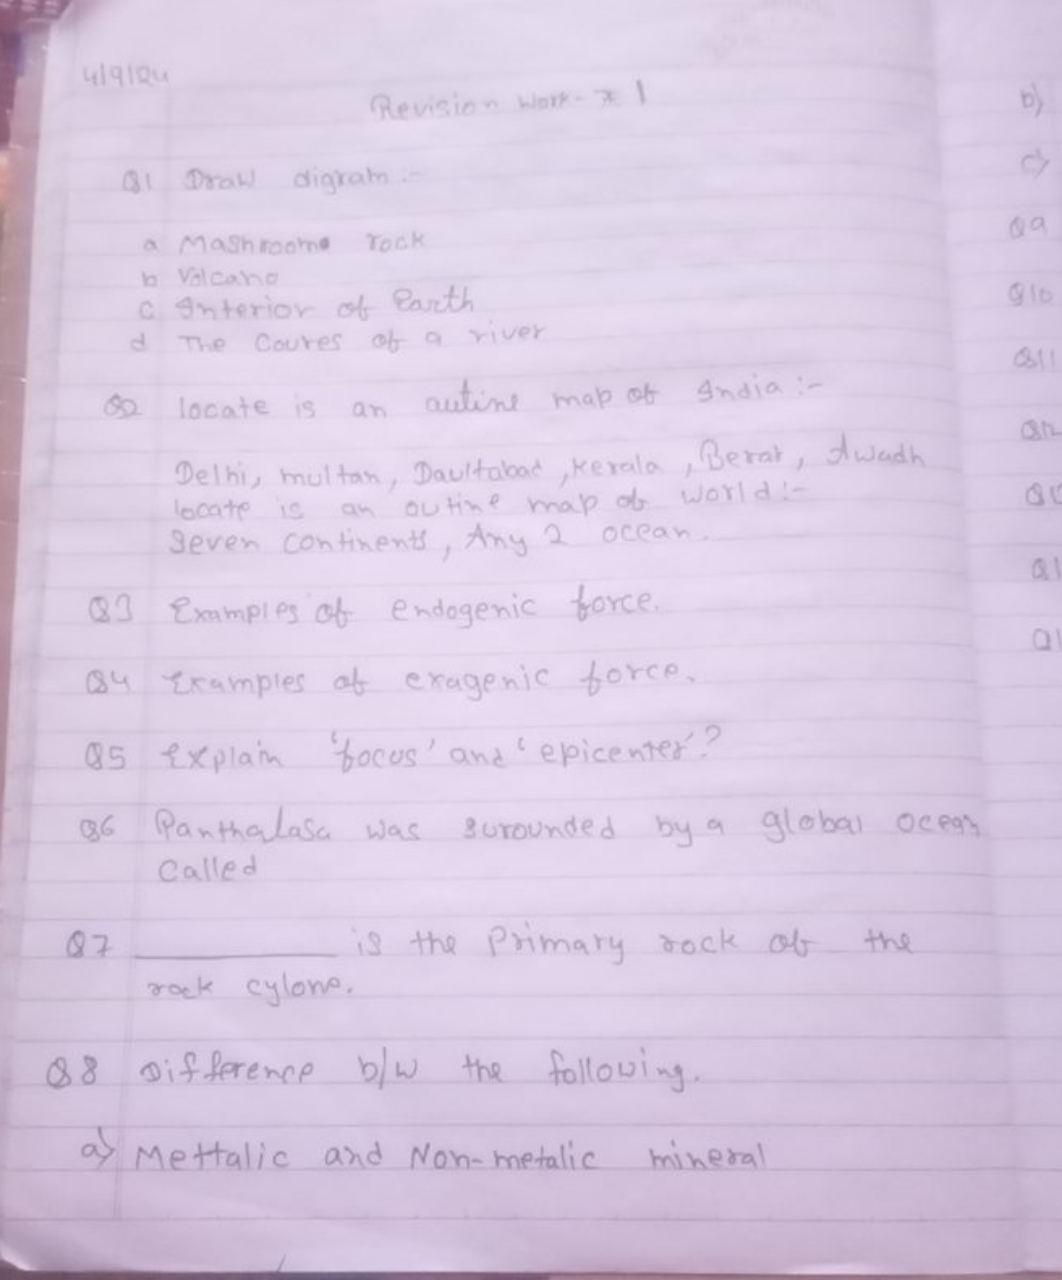 4/9/24
Revision Work- 1
Q1 Draw digram :-
a Mashroome rock
b Volcano
c Interior of Earth
d The Coures of a river
Q2 locate is an autine map of India :-
Delhi, multan, Daultabad, Kerala, Berar, Awadh
locate is an outine map of world :-
Seven continents, Any 2 ocean.
Q3 Examples of endogenic force.
Q4 Examples of exagenic force.
Q5 Explain 'focus' and 'epicenter'?
Q6 Panthalasa was surounded by a global ocean
Called
Q7 __________ is the Primary rock of the
rock cylone.
Q8 Difference b/w the following.
a) Mettalic and Non-metalic mineral
b)
c)
Q9
Q10
Q11